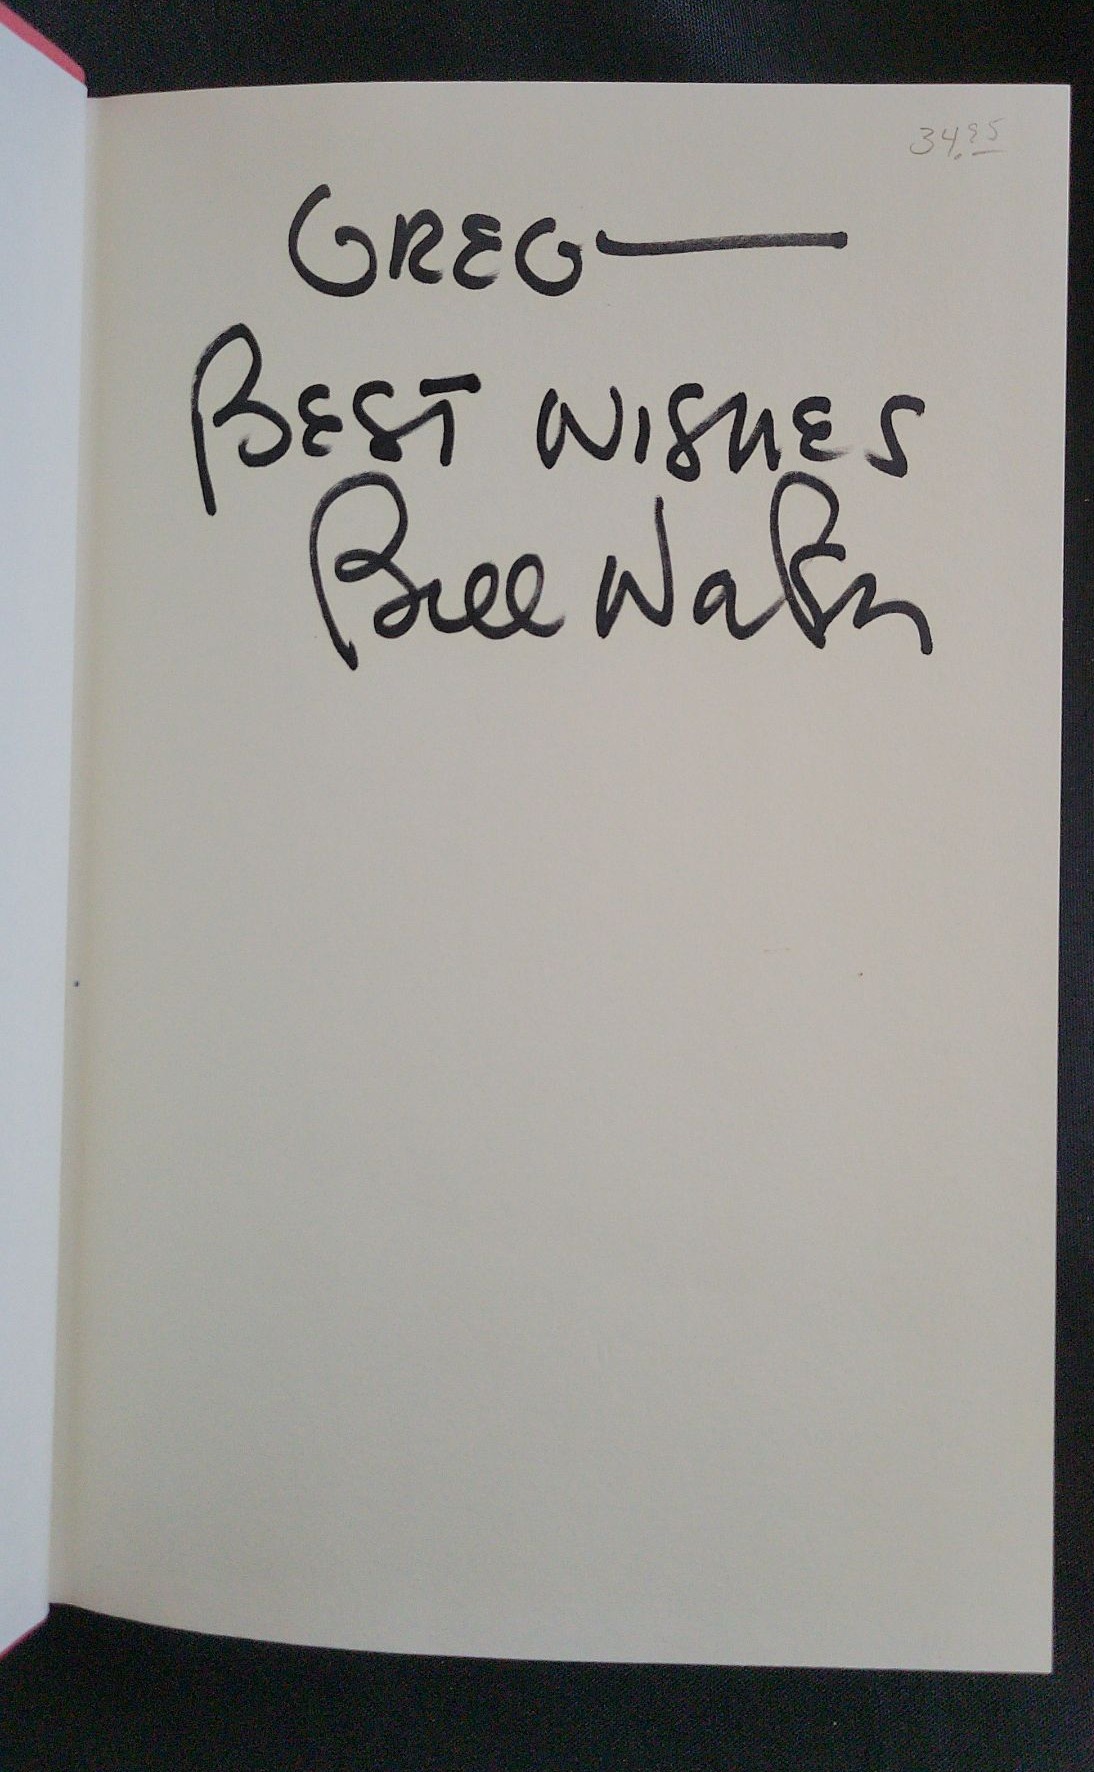 34.95
GREG—
BEST WISHES
Bill Walsh